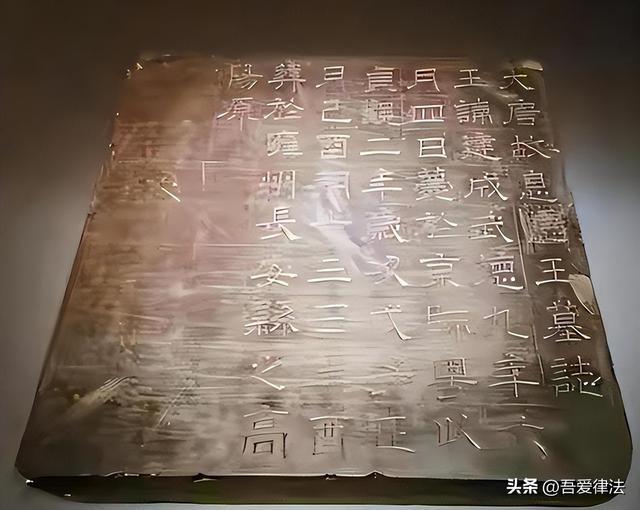 大唐故息隱王墓誌
王諱建成武德九年六
月四日薨於京師粤以
貞觀二年歲次戊子正
月己酉朔十三日辛酉
葬於雍州長安縣之高
陽原
头条 @吾爱律法